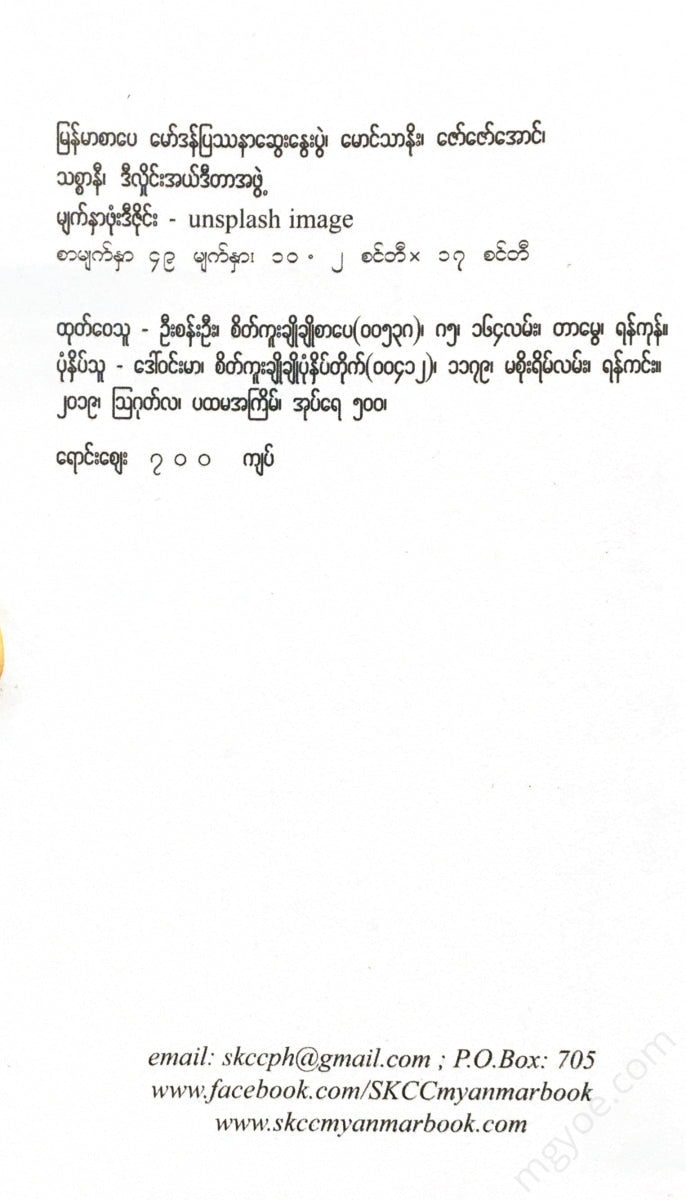 မြန်မာစာပေ မော်ဒန်ပြဿနာဆွေးနွေးပွဲ၊ မောင်သာနိုး၊ ဇော်ဇော်အောင်၊
သစ္စာနီ၊ ဒီလှိုင်းအယ်ဒီတာအဖွဲ့
မျက်နှာဖုံးဒီဇိုင်း - unsplash image
စာမျက်နှာ ၄၉ မျက်နှာ၊ ၁၀.၂ စင်တီ× ၁၇ စင်တီ
ထုတ်ဝေသူ - ဦးစန်းဦး၊ စိတ်ကူးချိုချိုစာပေ(၀၀၅၃၈)၊ ၈၅၊ ၁၆၄လမ်း၊ တာမွေ၊ ရန်ကုန်။
ပုံနှိပ်သူ - ဒေါ်ဝင်းမာ၊ စိတ်ကူးချိုချိုပုံနှိပ်တိုက်(၀၀၄၁၂)၊ ၁၁၇၉၊ မစိုးရိမ်လမ်း၊ ရန်ကင်း။
၂၀၁၉၊ ဩဂုတ်လ၊ ပထမအကြိမ်၊ အုပ်ရေ ၅၀၀၊
ရောင်းဈေး ၇၀၀ ကျပ်
email: skccph@gmail.com ; P.O.Box: 705
www.facebook.com/SKCCmyanmarbook
www.skccmyanmarbook.com
mgyoe.com